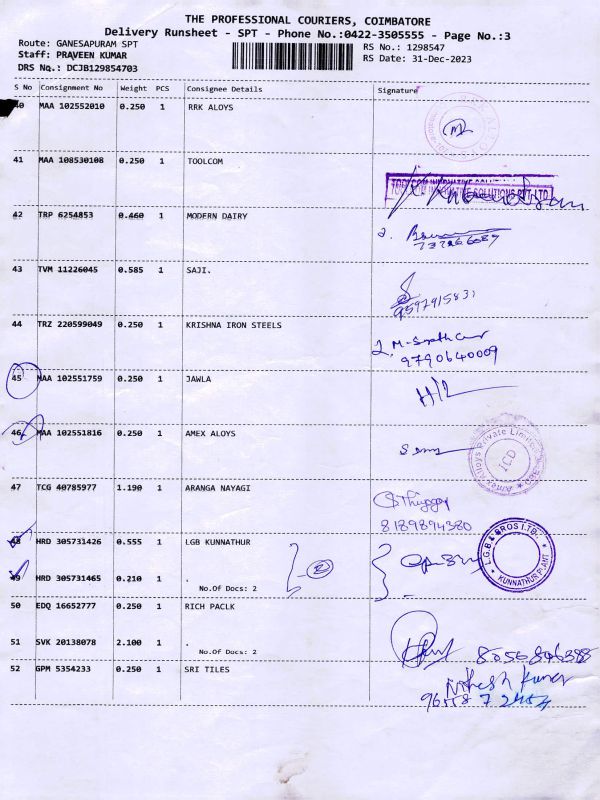 THE PROFESSIONAL COURIERS, COIMBATORE
Delivery Runsheet - SPT - Phone No.:0422-3505555 - Page No.:3
Route: GANESAPURAM SPT RS No.: 1298547
Staff: PRAVEEN KUMAR RS Date: 31-Dec-2023
DRS No.: DCJB129854703
S No Consignment No Weight PCS Consignee Details Signature
40 MAA 102552010 0.250 1 RRK ALOYS
41 MAA 108530108 0.250 1 TOOLCOM
TOOLCOM INNOVATIVE SOLUTIONS PVT LTD
42 TRP 6254853 0.460 1 MODERN DAIRY
2.
43 TVM 11226045 0.585 1 SAJI.
9597915831
44 TRZ 220599049 0.250 1 KRISHNA IRON STEELS
9790640009
45 MAA 102551759 0.250 1 JAWLA
46 MAA 102551816 0.250 1 AMEX ALOYS
Amex Alloys Private Limited
ICD
47 TCG 40785977 1.190 1 ARANGA NAYAGI
8189894380
48 HRD 305731426 0.555 1 LGB KUNNATHUR
2
L.G.B. & BROS LTD.
KUNNATHUR PLANT
49 HRD 305731465 0.210 1 .
No.Of Docs: 2
50 EDQ 16652777 0.250 1 RICH PACLK
51 SVK 20138078 2.100 1 .
No.Of Docs: 2
8056806388
52 GPM 5354233 0.250 1 SRI TILES
Kumar